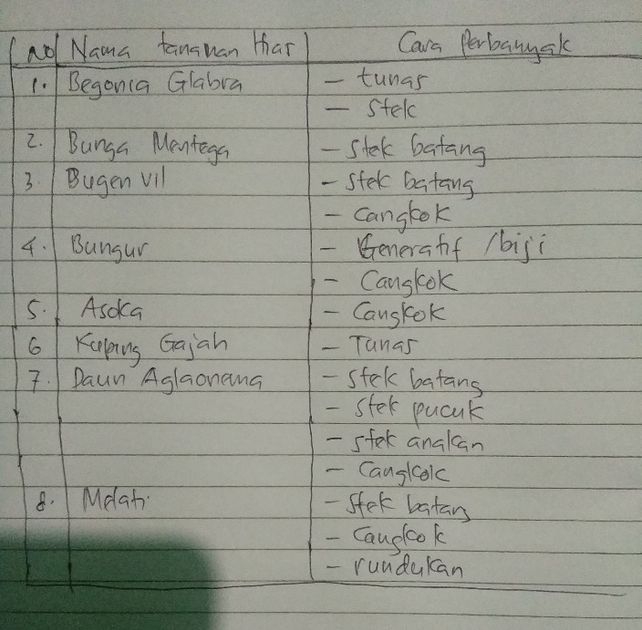 No Nama tanaman Hias Cara Perbanyak
1. Begonia Glabra - tunas
- Stek
2. Bunga Mentega - Stek batang
3. Bugenvil - Stek batang
- Cangkok
4. Bungur - Generatif /biji
- Cangkok
5. Asoka - Cangkok
6 Kuping Gajah - Tunas
7. Daun Aglaonema - Stek batang
- Stek pucuk
- Stek anakan
- Cangkok
8. Melati - Stek batang
- Cangkok
- rundukan